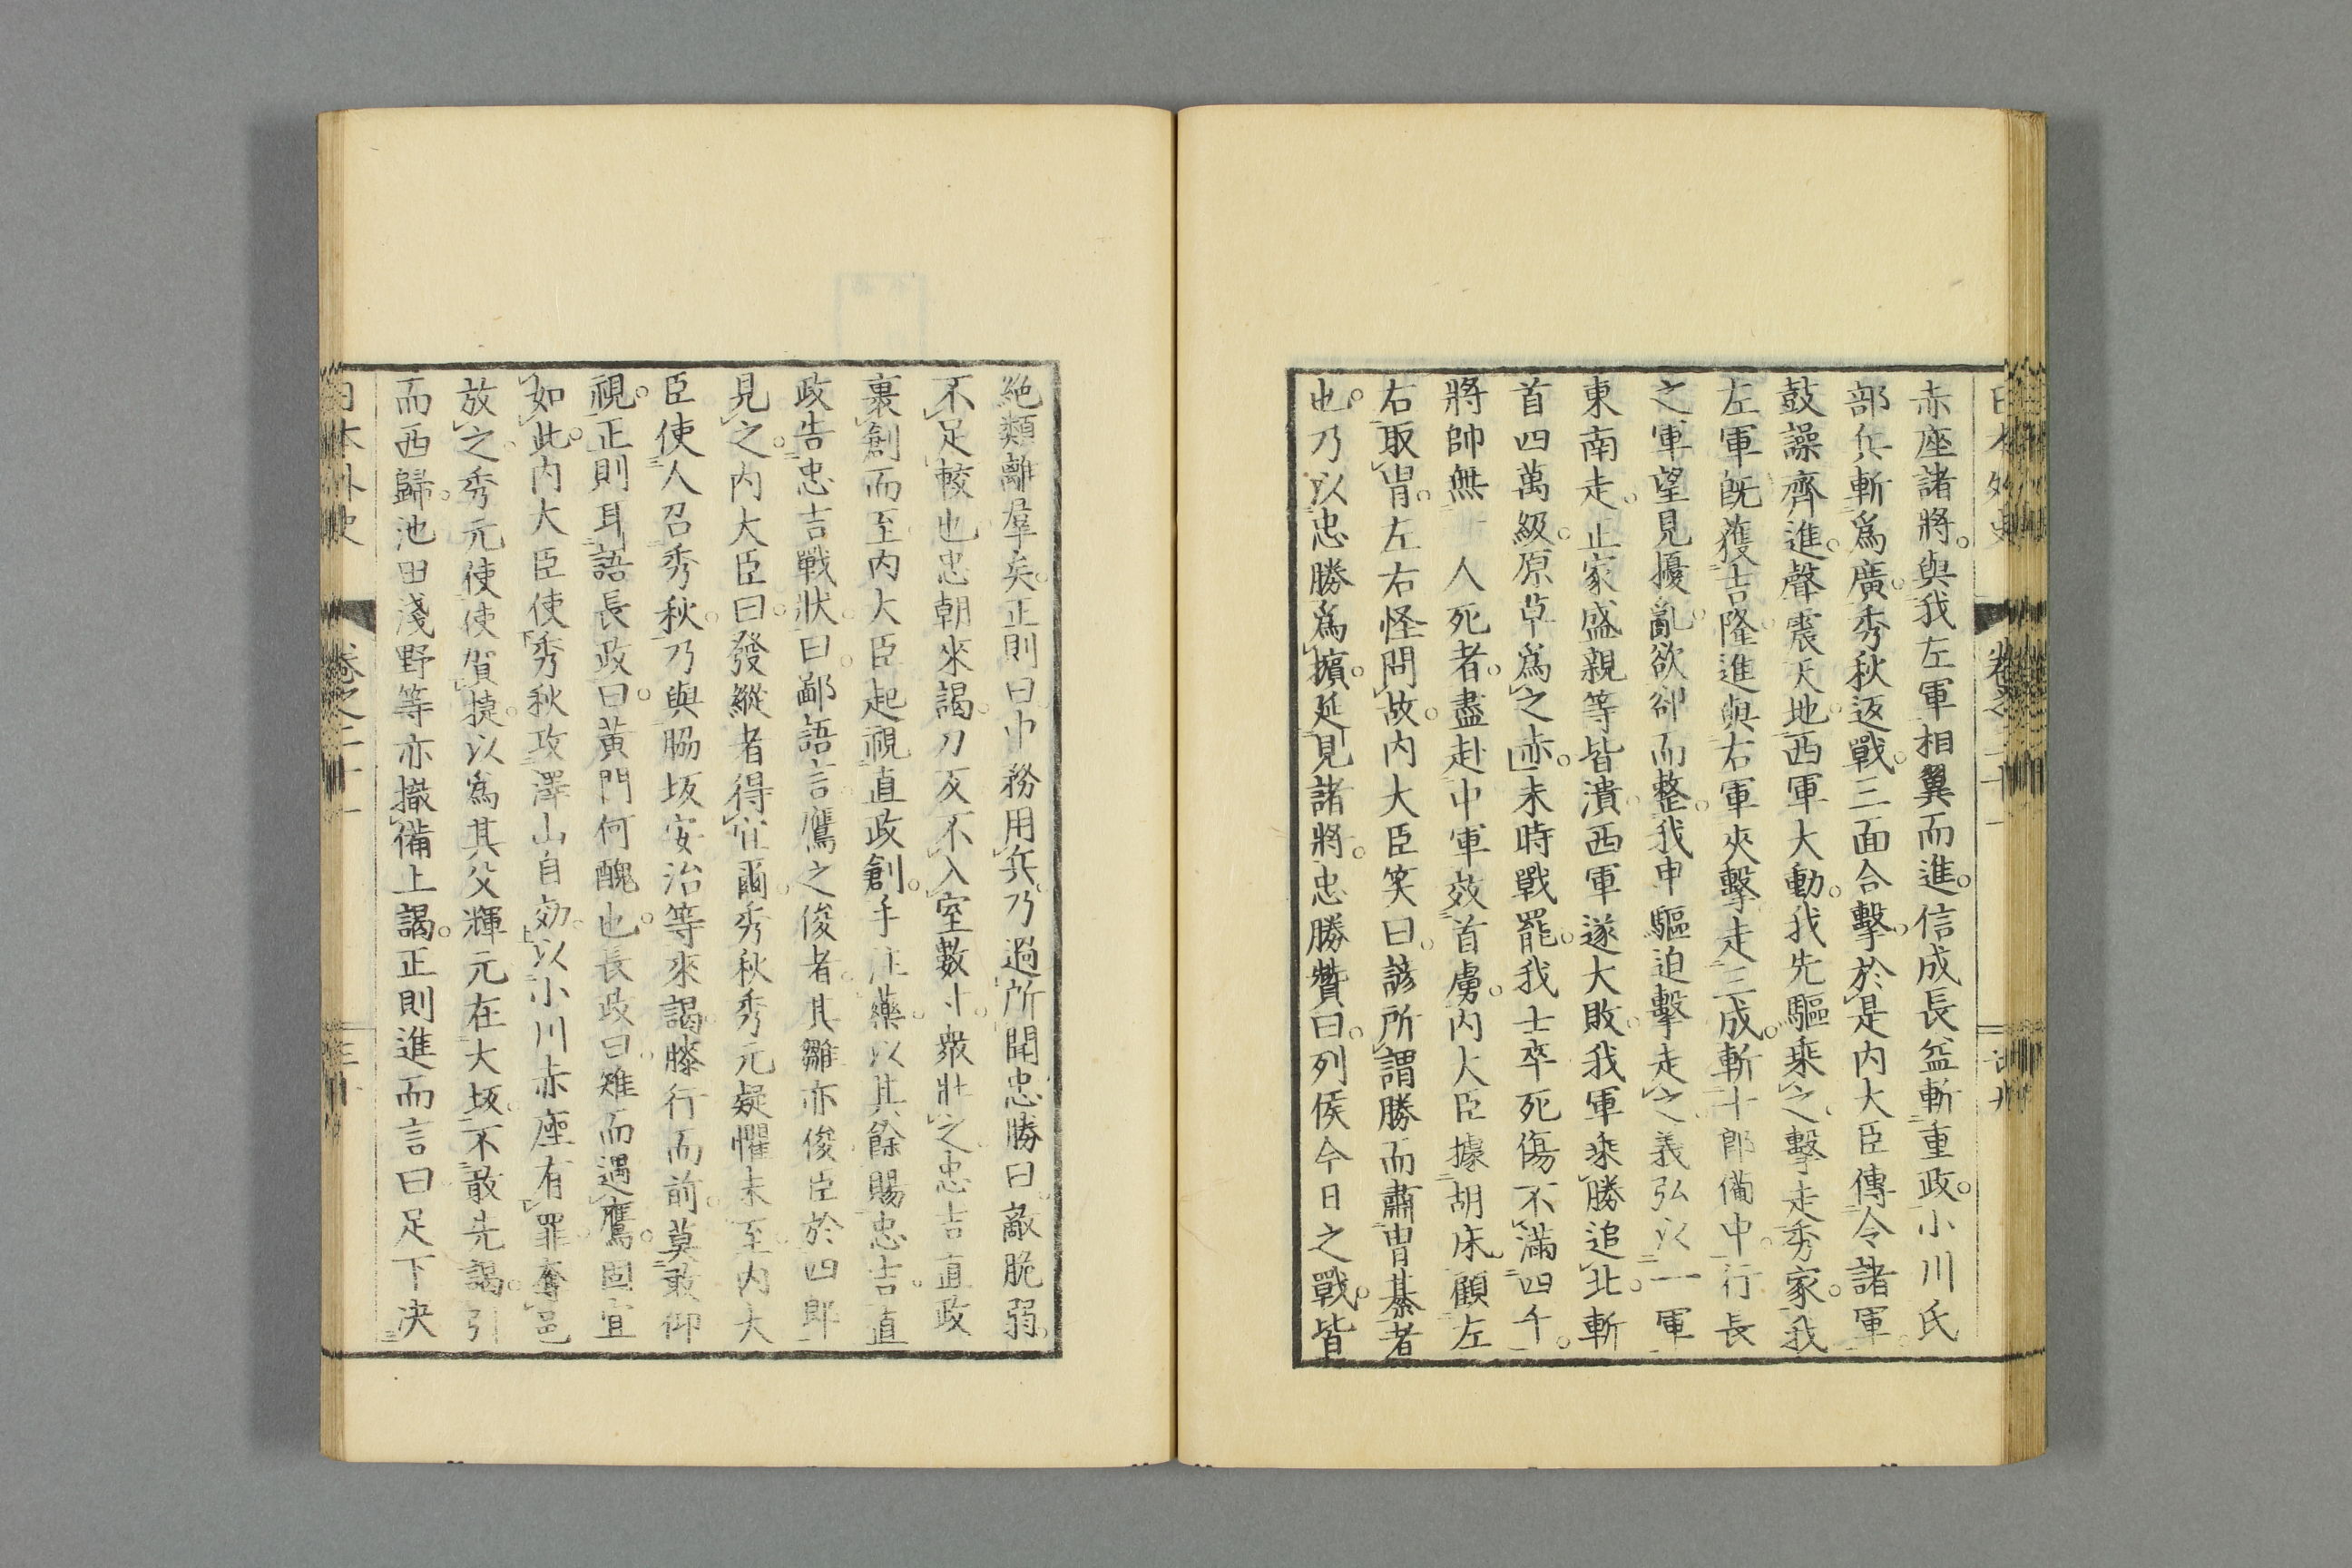 赤座諸將。與我左軍相翼而進。信成長盆斬重政。小川氏
部兵斬爲廣。秀秋返戰。三面合擊。於是內大臣傳令諸軍。
鼓譟齊進。聲震天地。西軍大動。我先驅乘之。擊走秀家。我
左軍既獲吉隆。進與右軍夾擊走三成。斬十郎備中。行長
之軍望見擾亂。欲卻而整。我中驅迫擊走之。義弘以一軍
東南走。止家盛親等皆潰。西軍遂大敗。我軍乘勝追北。斬
首四萬級。原草爲之赤。未時戰罷。我士卒死傷不滿四千。
將帥無一人死者。盡赴中軍效首虜。內大臣據胡床。顧左
右取冑。左右怪問故。內大臣笑曰。諺所謂勝而肅冑綦者
也。乃以忠勝爲擯。延見諸將。忠勝贊曰。列侯今日之戰。皆
絶類離羣矣。正則曰中務用兵。乃過所聞。忠勝曰。敵脆弱。
不足較也。忠朝來謁。刀反不入室數寸。衆壯之。忠吉直政
裹創而至。內大臣起視直政創。手注藥。以其餘賜忠吉。直
政告忠吉戰狀。曰。鄙語言。鷹之俊者。其雛亦俊。臣於四郎
見之。內大臣曰。發縱者得宜爾。秀秋秀元疑懼未至。內大
臣使人召秀秋。乃與脇坂安治等來謁。膝行而前。莫敢仰
視。正則耳語長政曰。黃門何醜也。長政曰。雉而遇鷹。固宜
如此。內大臣使秀秋攻澤山自効。以小川赤座有罪奪邑
放之。秀元使使賀捷。以爲其父輝元在大坂。不敢先謁。引
而西歸。池田淺野等亦撤備上謁。正則進而言曰。足下決
日本外史
卷之二十一